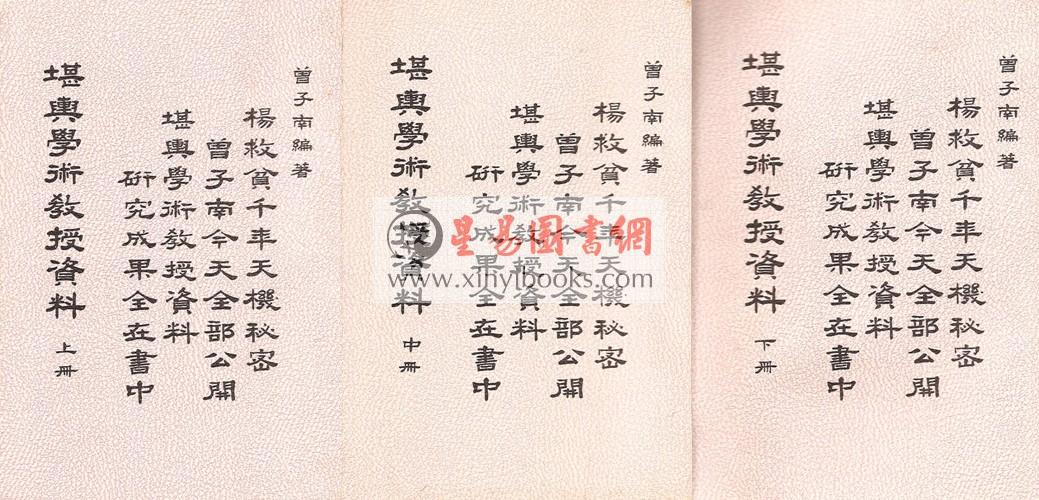 曾子南編著
楊救貧千年天機秘密
曾子南今天全部公開
堪輿學術教授資料
研究成果全在書中
堪輿學術教授資料 上冊
曾子南編著
楊救貧千年天機秘密
曾子南今天全部公開
堪輿學術教授資料
研究成果全在書中
堪輿學術教授資料 中冊
曾子南編著
楊救貧千年天機秘密
曾子南今天全部公開
堪輿學術教授資料
研究成果全在書中
堪輿學術教授資料 下冊
星易圖書網
www.xinyibooks.com